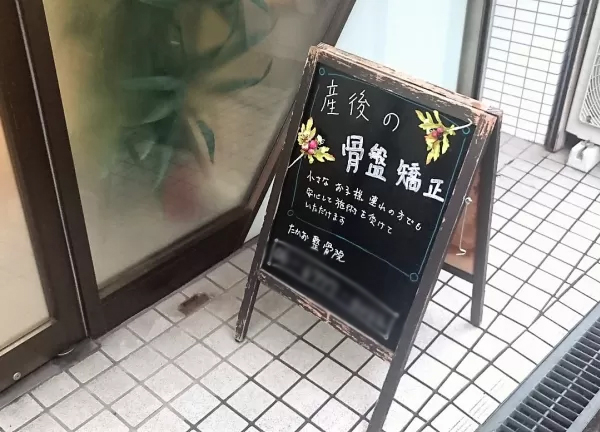 産後の
骨盤矯正
小さなお子様連れの方でも
安心して施術を受けて
いただけます
たかお整骨院